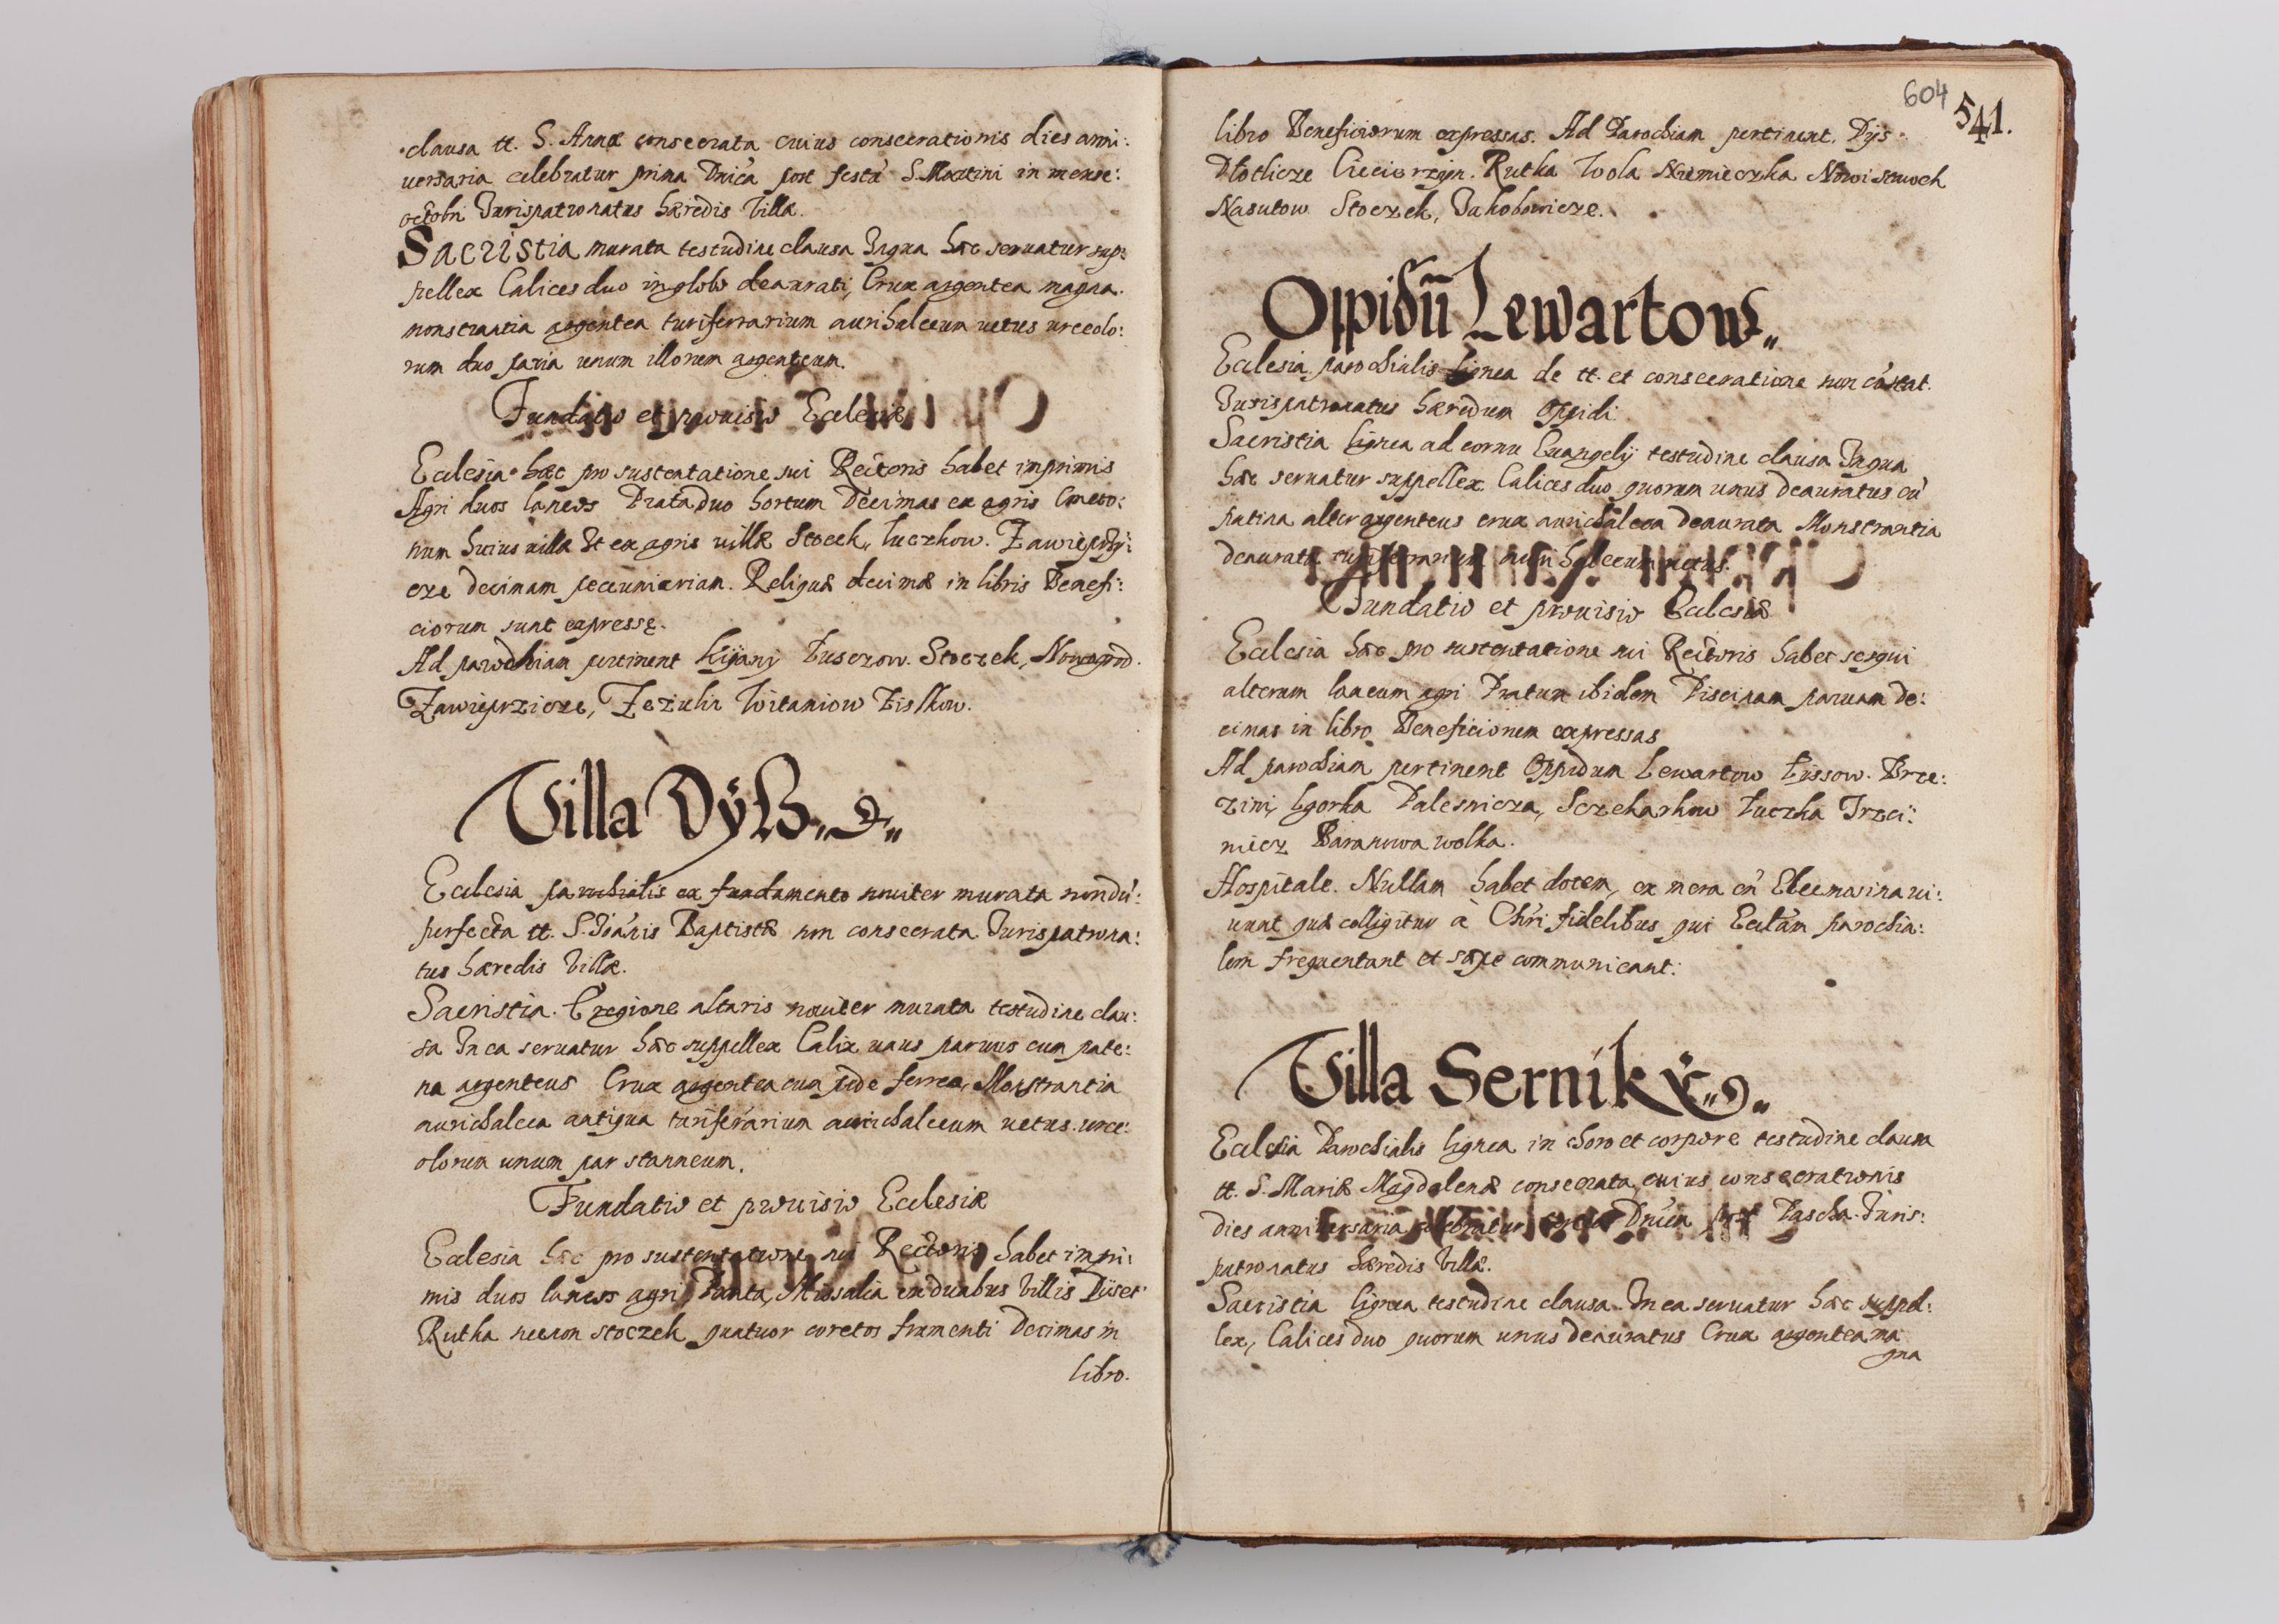 clausa tt. S. Annæ consecrata cuius consecrationis dies anni:
uersaria celebratur prima Dnica post festũ S. Martini in mense:
octobri Jurispatronatus hæredis Villæ.
Sacristia murata testudine clausa Inqua hæc seruatur sup:
pellex Calices duo in globo deaurati, Crux argentea magna.
monstrantia argentea turiferrarium aurihalceum uetus urceolo:
rum duo paria unum illorum argenteum.
Fundatio et prouisio Ecclesiæ
Ecclesia hæc pro sustentatione sui Rectoris habet imprimis
Agri duos laneos Prata duo hortum Decimas ex agris Cmeto:
num huius uillæ Et ex agris uillæ Stoczek, Luczkow. Zawieprzi:
cze decimam pecuniariam. Reliquæ decimæ in libris Benefi:
ciorum sunt expressę.
Ad parochiam pertinent Kijanÿ Lusczow. Stoczek, Nowogrod.
Zawieprzicze, Zezulin Witaniow Ziolkow.
Villa Dÿß
Ecclesia parochialis ex fundamento nouiter murata nondũ:
perfecta tt. S. Joãnis Baptistæ non consecrata Jurispatrona:
tus hæredis Villæ.
Sacristia. E regione altaris nouiter murata testudine clau:
sa In ea seruatur hæc suppellex Calix unus paruus cum pate:
na argenteus Crux argentea cum pede ferreo, Monstrantia
aurichalcea antiqua turiferarium aurichalceum uetus. urce:
olorum unum par stanneum.
Fundatio et prouisio Ecclesiæ
Ecclesia hæc pro sustentatione sui Rectoris habet impri:
mis duos laneos agri, Prata, Missalia in duabus Villis Dÿs et
Rutka necnon stoczek quatuor coretos frumenti Decimas in
libro.
604
541.
libro Beneficiorum expressas. Ad Parochiam pertinent. Dÿs
Ciecierzyn. Rutka Wola Niemieczka Nowi stawek
Nasutow Stoczek, Jakobowicze.
Oppidũ Lewartow
Ecclesia parochialis lignea de tt. et consecratione non cõstat.
Jurispatronatus hæredum Oppidi
Sacristia lignea ad cornu Euangelÿ testudine clausa Inqua
hæc seruatur suppellex. Calices duo quorum unus deauratus cũ
patina alter argenteus crux aurichalcea deaurata Monstrantia
deaurata turiferrarium aurihalceum uetus.
Fundatio et prouisio Ecclesiæ
Ecclesia hæc pro sustentatione sui Rectoris habet sesqui
alterum laneum agri Pratum ibidem Piscinam paruam de:
cimas in libro Beneficiorum expressas
Ad parochiam pertinent Oppidum Lewartow Lissow. Brze:
zini, Gorka Palesnicza, Sczekarkow Luczka Trzci:
niecz Baranowa wolka.
Hospitale. Nullam habet dotem, ex mera eñ Eleemosina ui:
uunt quæ colligitur à Chri fidelibus qui Eccliam parochia:
lem frequentant et sæpe communicant.
Villa Sernikÿ
Ecclesia Parochialis lignea in choro et corpore testudine clausa
tt. S. Mariæ Magdalenæ consecrata, cuius consecrationis
dies anniuersaria celebratur Dnica post Pascha. Juris:
patronatus hæredis Villæ.
Sacristia lignea testudine clausa. In ea seruatur hæc suppel:
lex, Calices duo quorum unus deauratus Crux argentea ma
gna